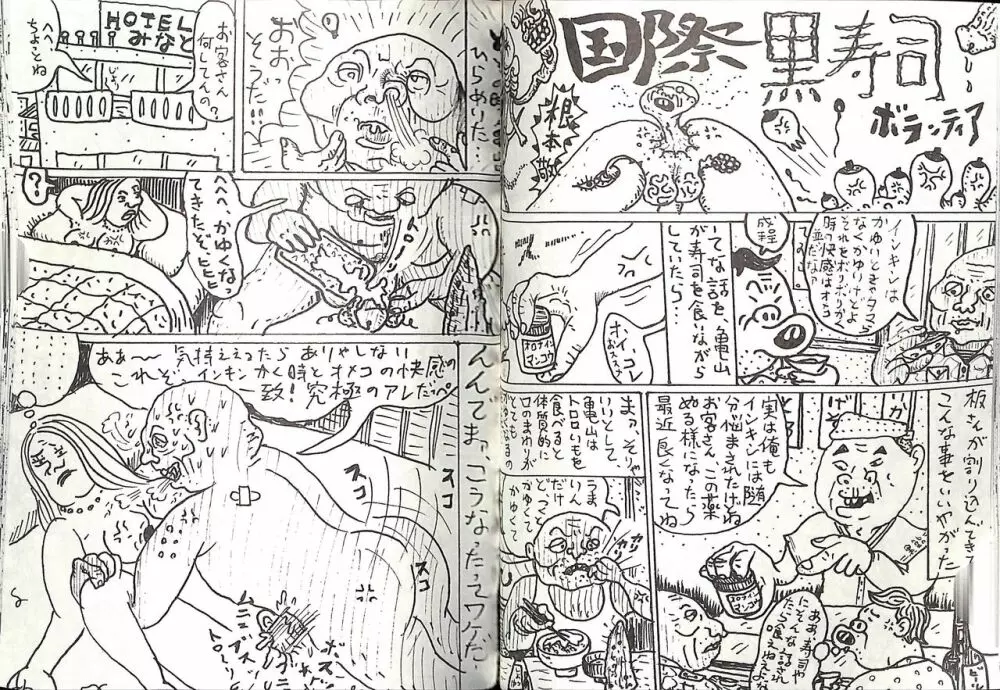 国際黒寿司
ボランティア
根本敬
インキンは
かゆいときャタマ
なくかゆいけどよ
それをボリボリかく
時の快感はオメコ
並だな?
てのは
成程
いてな話を亀山
が寿司を食いながら
していたら…
オイ、コレ
おススメ
オロナイン
マンコウ
板さんが割り込んできて
こんな事をいいやがった
実は俺も
インキンには随
分悩まされたけどね
お客さんこの薬
ぬる様になったら
最近良くなってね
オロナイン
マンコウ
ああ、寿司や
にてんな話され
たら食えねえな
まァ、そりゃ
いいとして、
亀山は
トロロいもを
食べると
体質的に
口のまわりが
とても
かゆくなるの
だけど
うまいん
どっても
かゆくて
かゆくて
カリカリ
ひらめいた…
おおっ
そうだ
HOTEL
みなと
お客さん
何してんの?
へへ
ちょっとね
トローリ
へへ、かゆくな
てきたぞ、ヒヒヒ
?
んんてまァこうなったってワケだ
ああ〜気持ええったらありゃしない
これぞ!インキンかく時とオメコの快感の
一致!究極のアレだっぺ
スコ
スコ
スコ